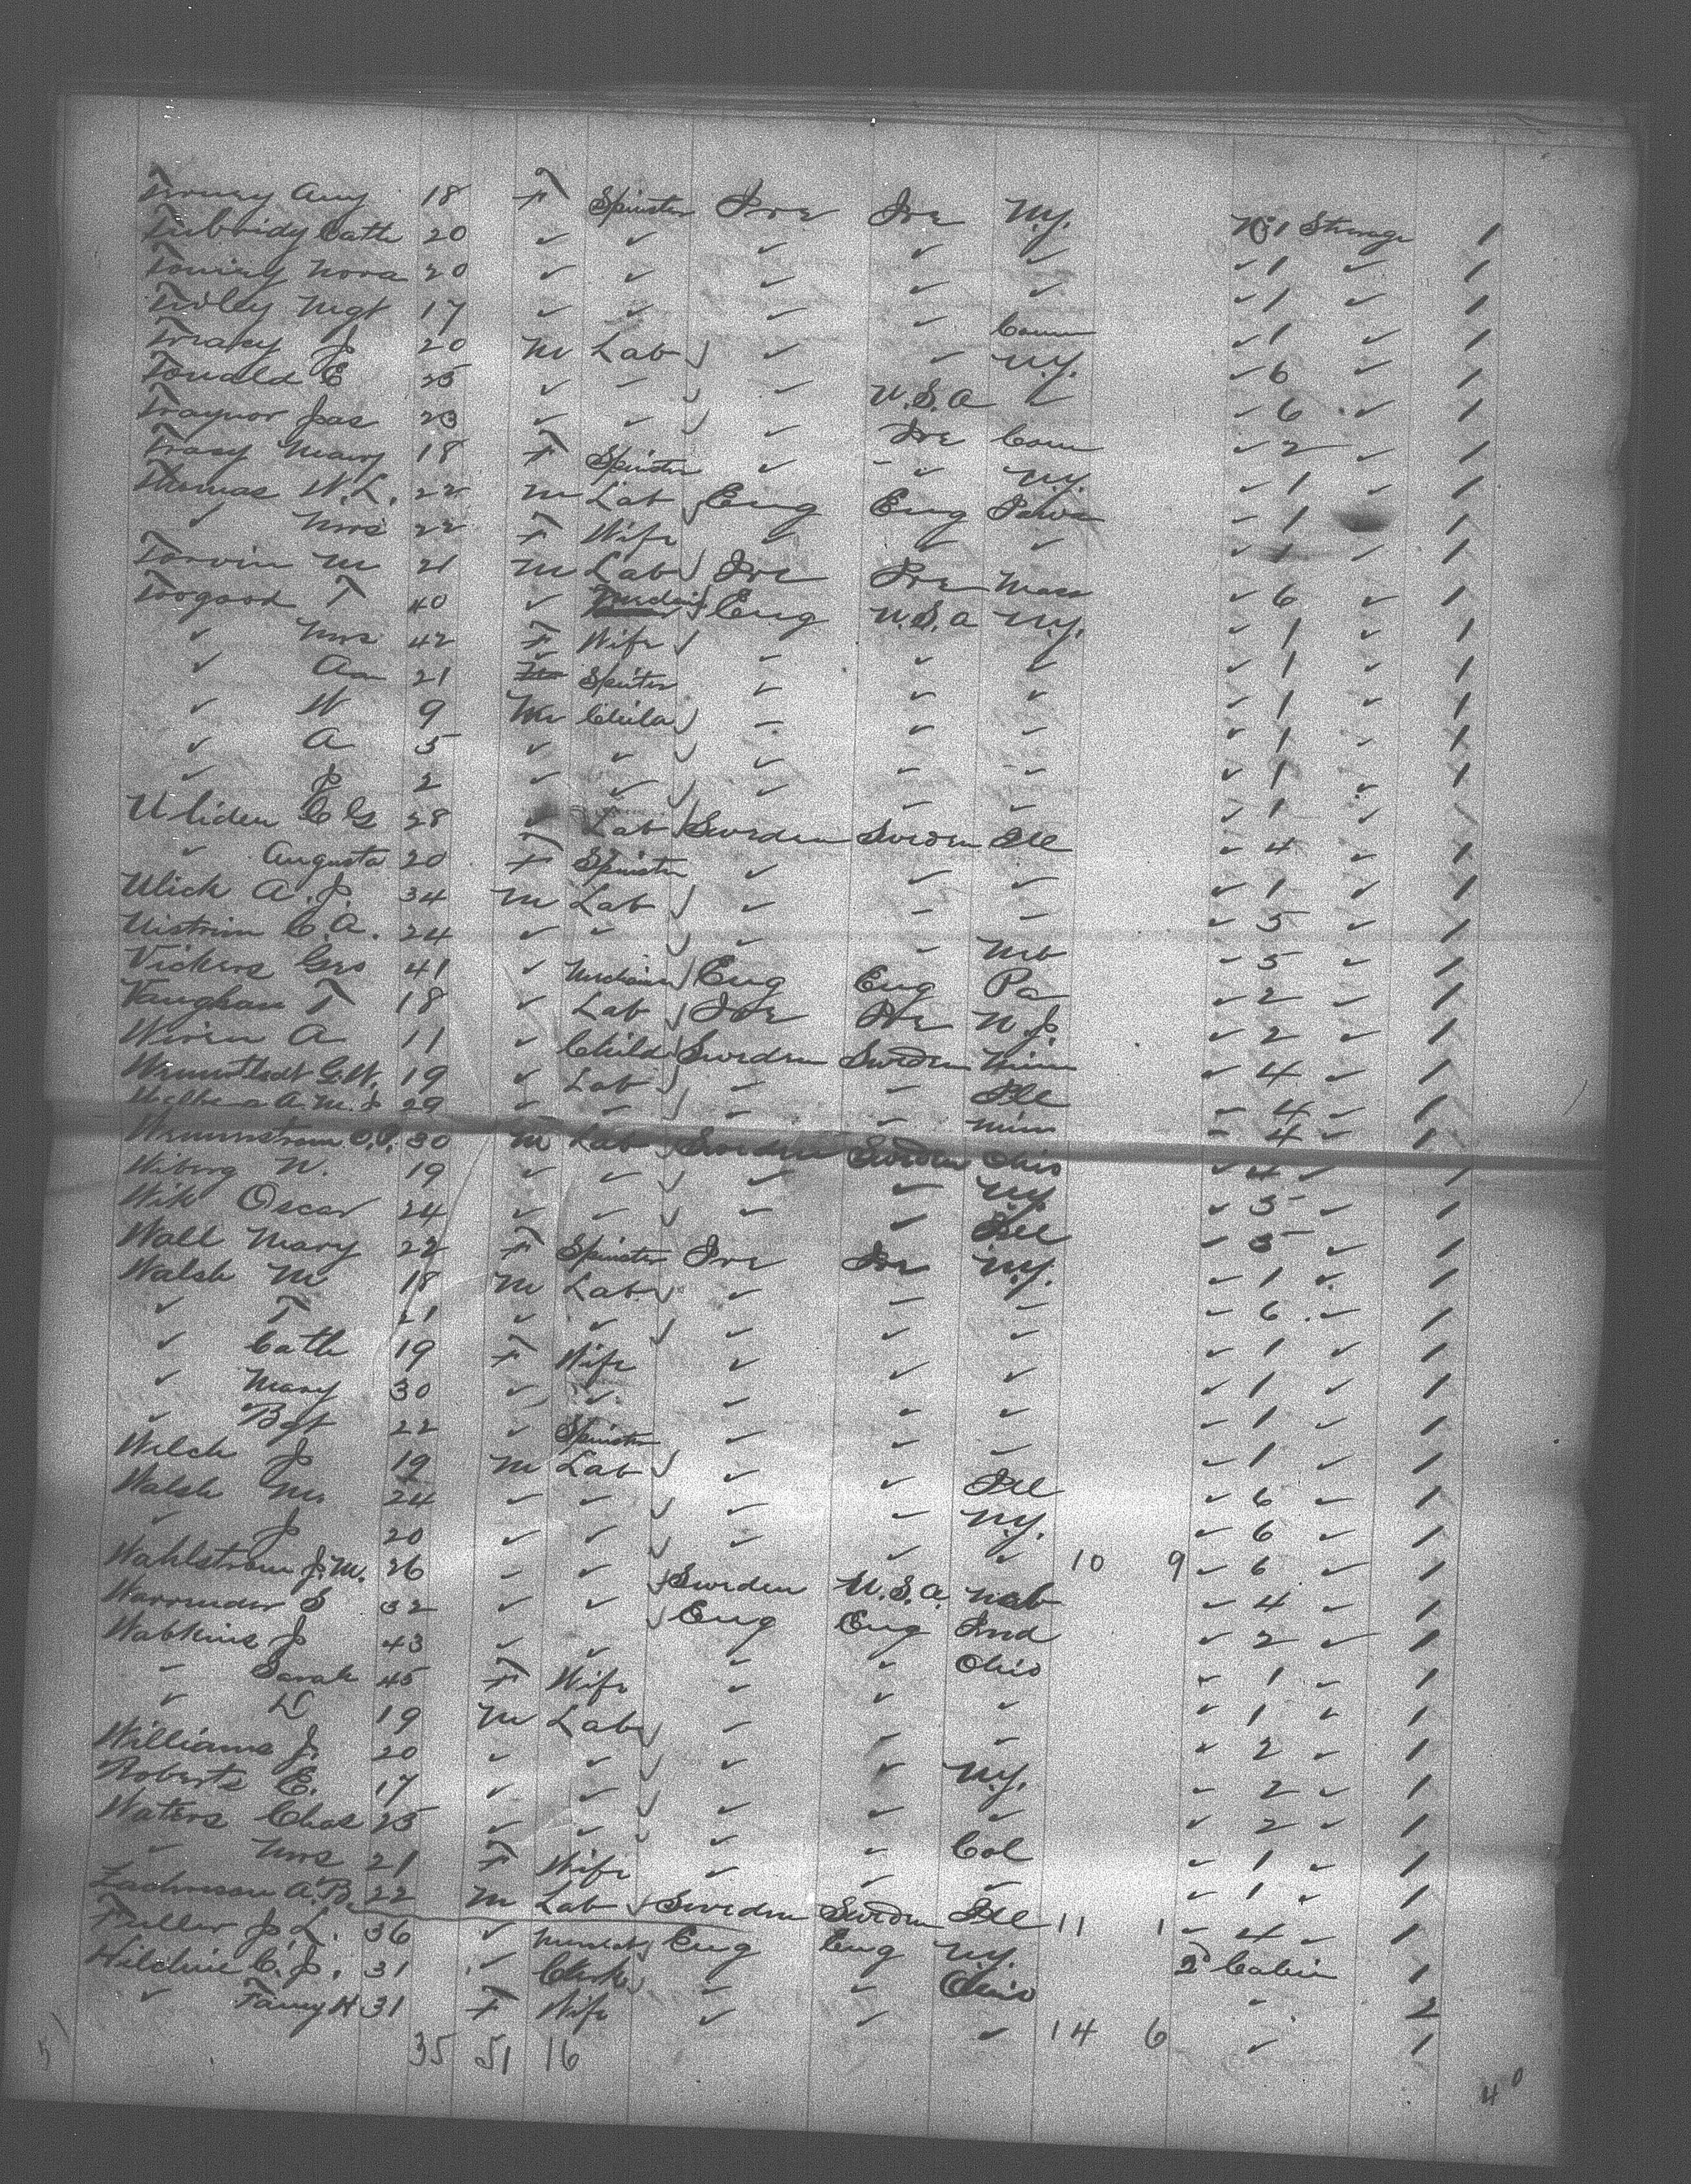 Amy 18 F Spinster Ire Ire N.Y. No 1 Steerage 1
Tubridy Cath 20 ✓ ✓ ✓ ✓ ✓ ✓ 1 ✓ 1
Nora 20 ✓ ✓ ✓ ✓ ✓ ✓ 1 ✓ 1
Mgt 17 ✓ ✓ ✓ ✓ Conn ✓ 1 ✓ 1
J 20 M Lab ✓ ✓ N.Y. ✓ 6 ✓ 1
E 25 ✓ ✓ ✓ U.S.A ✓ ✓ 6 ✓ 1
Traynor Jas 23 ✓ ✓ ✓ Ire Conn ✓ 2 ✓ 1
Tracy Mary 18 F Spinster ✓ ✓ N.Y. ✓ 1 ✓ 1
Thomas W.L. 22 M Lab Eng Eng ✓ 1 1
✓ Mrs 22 F Wife ✓ ✓ ✓ ✓ 1 ✓ 1
Torvin M 21 M Lab Ire Ire Mass ✓ 6 ✓ 1
Toogood T 40 ✓ Eng U.S.A N.Y. ✓ 1 ✓ 1
✓ Mrs 42 F Wife ✓ ✓ ✓ ✓ 1 ✓ 1
✓ 21 ✓ ✓ ✓ ✓ ✓ 1 ✓ 1
✓ W 9 M Child ✓ ✓ ✓ ✓ 1 ✓ 1
✓ A 5 ✓ ✓ ✓ ✓ ✓ ✓ 1 ✓ 1
✓ J 2 ✓ ✓ ✓ ✓ ✓ ✓ 1 ✓
Uliden C G 28 ✓ Lab Sweden Sweden Ill ✓ 4 ✓ 1
✓ Augusta 20 F Spinster ✓ ✓ ✓ ✓ 1 ✓ 1
Ulick A.J. 34 M Lab ✓ ✓ ✓ ✓ 5 ✓ 1
C.A. 24 ✓ ✓ ✓ ✓ ✓ 5 ✓ 1
Vickers Geo 41 ✓ Eng Eng Pa ✓ 2 ✓ 1
Vaughan T 18 ✓ Lab Ire Ire N.J. ✓ 2 ✓ 1
Wiren A 11 ✓ Child Sweden Sweden Minn ✓ 4 ✓ 1
G.W. 19 ✓ Lab ✓ ✓ Ill ✓ 4 ✓ 1
A.M. 29 ✓ ✓ ✓ ✓ Minn ✓ 4 ✓ 1
30 M Lab Sweden Sweden Ohio ✓ 4 ✓ 1
Wiberg N. 19 ✓ ✓ ✓ ✓ N.Y. ✓ 5 ✓ 1
Wik Oscar 24 ✓ ✓ ✓ ✓ Ill ✓ 5 ✓ 1
Wall Mary 22 F Spinster Ire Ire N.Y. ✓ 1 ✓ 1
Walsh M 18 M Lab ✓ ✓ ✓ ✓ 6 ✓ 1
✓ T 21 ✓ ✓ ✓ ✓ ✓ ✓ 1 ✓ 1
✓ Cath 19 F Wife ✓ ✓ ✓ ✓ 1 ✓ 1
✓ Mary 30 ✓ ✓ ✓ ✓ ✓ ✓ 1 ✓ 1
✓ Bgt 22 ✓ Spinster ✓ ✓ ✓ ✓ 1 ✓ 1
Welch J 19 M Lab ✓ ✓ Ill ✓ 6 ✓ 1
Walsh M. 24 ✓ ✓ ✓ ✓ N.Y. ✓ 6 ✓ 1
✓ J 20 ✓ ✓ ✓ ✓ ✓ 10 9 ✓ 6 ✓ 1
Wahlstrom J.M. 26 ✓ ✓ Sweden U.S.A. Neb ✓ 4 ✓ 1
S 32 ✓ ✓ Eng Eng Ind ✓ 2 ✓ 1
Watkins J 43 ✓ ✓ ✓ ✓ Ohio ✓ 1 ✓ 1
✓ Sarah 45 F Wife ✓ ✓ ✓ ✓ 1 ✓ 1
✓ 19 M Lab ✓ ✓ ✓ ✓ 2 ✓ 1
Williams J. 20 ✓ ✓ ✓ ✓ N.Y. ✓ 2 ✓ 1
Roberts E. 17 ✓ ✓ ✓ ✓ ✓ ✓ 2 ✓ 1
Waters Chas 25 ✓ ✓ ✓ ✓ Col ✓ 1 ✓ 1
✓ Mrs 21 F Wife ✓ ✓ ✓ ✓ 1 ✓ 1
A.B. 22 M Lab Sweden Sweden Ill 11 1 ✓ 4 ✓ 1
Fuller J.L. 36 ✓ Eng Eng N.Y. 2d Cabin 1
C.J. 31 ✓ Clerk ✓ ✓ Ohio ✓ 2
✓ Fanny H 31 F Wife ✓ ✓ ✓ 14 6 ✓ 1
35 51 16